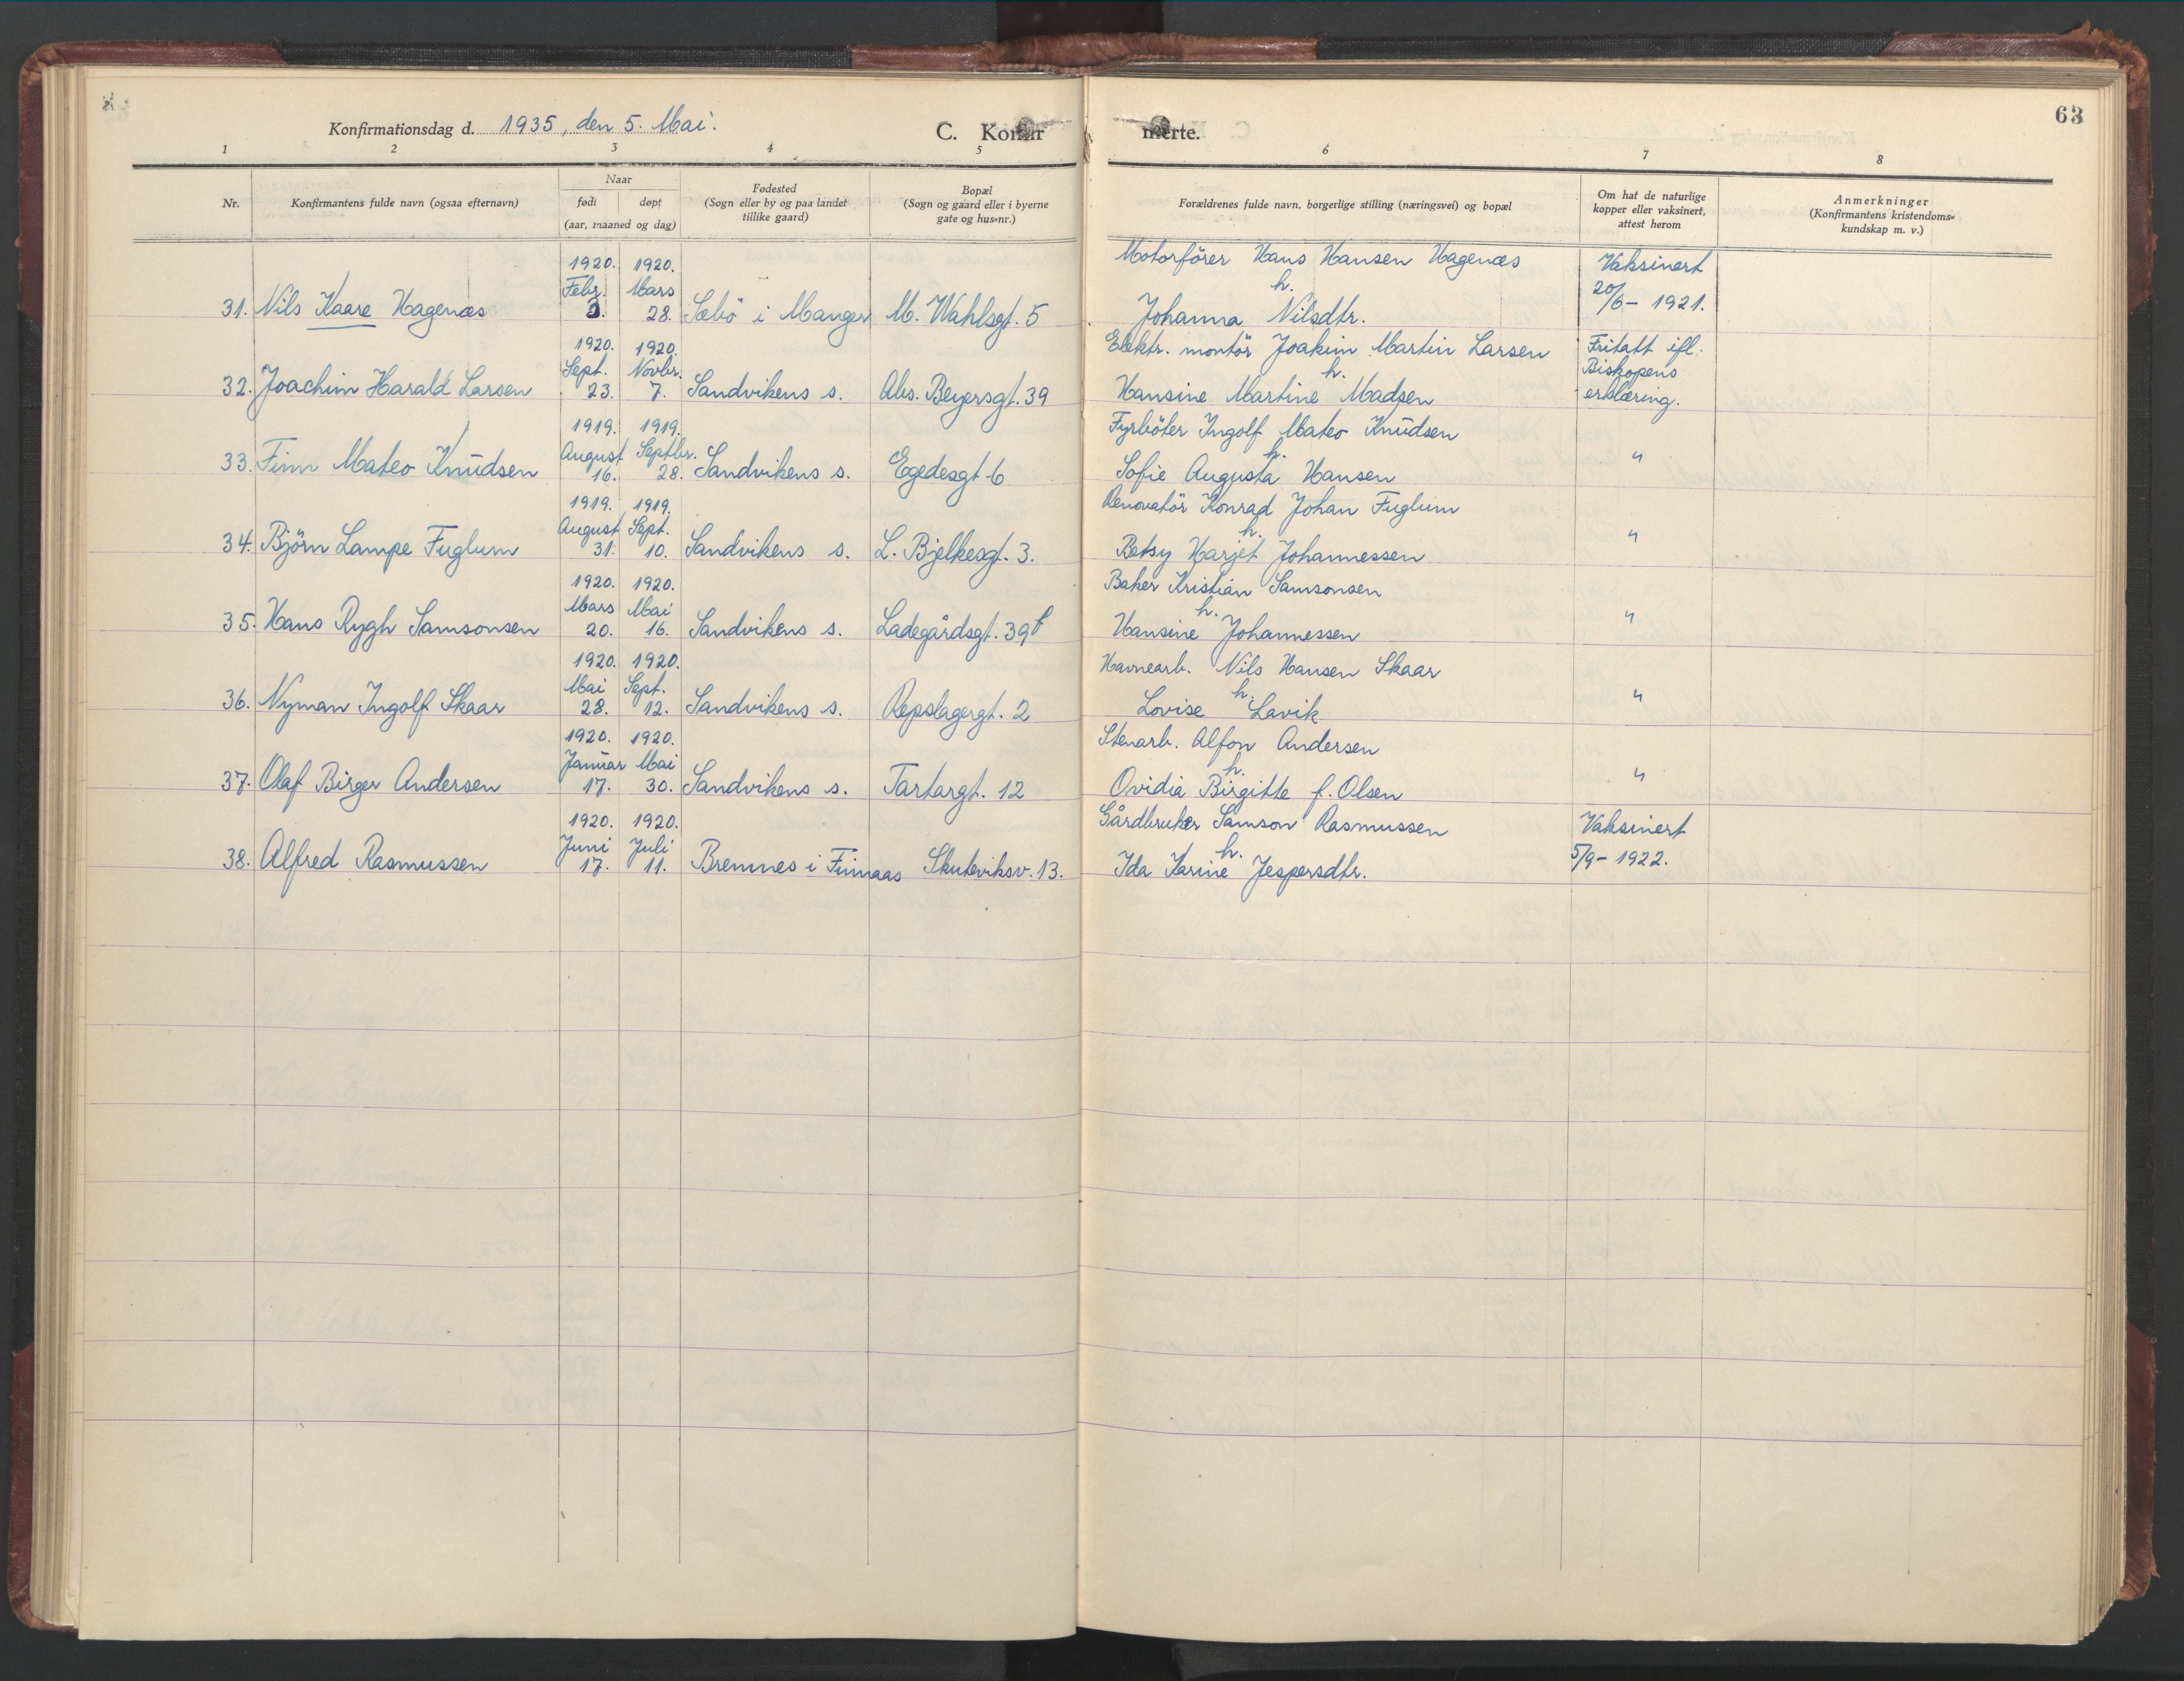 63
Konfirmationsdag d. 1935, den 5. Mai.
C. Konfir merte.
1 2 3 4 5 6 7 8
Nr.
Konfirmantens fulde navn (ogsaa efternavn)
Naar
født døpt
(aar, maaned og dag)
Fødested
(Sogn eller by og paa landet
tillike gaard)
Bopæl
(Sogn og gaard eller i byerne
gate og hus-nr.)
Forældrenes fulde navn, borgerlige stilling (næringsvei) og bopæl
Om hat de naturlige
kopper eller vaksinert,
attest herom
Anmerkninger
(Konfirmantens kristendoms-
kundskap m. v.)
1920. 1920. Motorförer Hans Hansen Hagenæs Vaksinert
Febr. Mars h. 20/6- 1921.
31. Nils Kaare Hagenæs 3. 28. Sæbö i Manger M. Wahlsgt. 5 Johanna Nilsdtr.
1920. 1920. Elektr. montör Joakim Martin Larsen Fritatt ifl.
Sept. Novbr. h. Biskopens
32. Joachim Harald Larsen 23. 7. Sandvikens s. Abs. Beyersgt. 39 Hansine Martine Madsen erklæring.
1919. 1919. Fyrböter Ingolf Mateo Knudsen
August Septbr. h. "
33. Finn Mateo Knudsen 16. 28. Sandvikens s. Egedesgt 6 Sofie Augusta Hansen
1919. 1919. Renovatör Konrad Johan Fuglum
August Sept. h. "
34. Björn Lampe Fuglum 31. 10. Sandvikens s. L. Bjelkesgt. 3. Betsy Harjet Johannessen
1920. 1920. Baker Kristian Samsonsen
Mars Mai h. "
35. Hans Rygh Samsonsen 20. 16. Sandvikens s. Ladegårdsgt. 39 b Hansine Johannessen
1920. 1920. Havnearb. Nils Hansen Skaar
Mai Sept. h. "
36. Nyman Ingolf Skaar 28. 12. Sandvikens s. Repslagergt. 2 Lovise Lavik
1920. 1920. Stenarb. Alfon Andersen
Januar Mai h. "
37. Olaf Birger Andersen 17. 30. Sandvikens s. Tartargt. 12 Ovidia Birgitte f. Olsen
1920. 1920. Gårdbruker Samson Rasmussen Vaksinert
Juni Juli h. 5/9- 1922.
38. Alfred Rasmussen 17. 11. Bremnes i Finnaas Skuteviksv. 13. Ida Karine Jespersdtr.